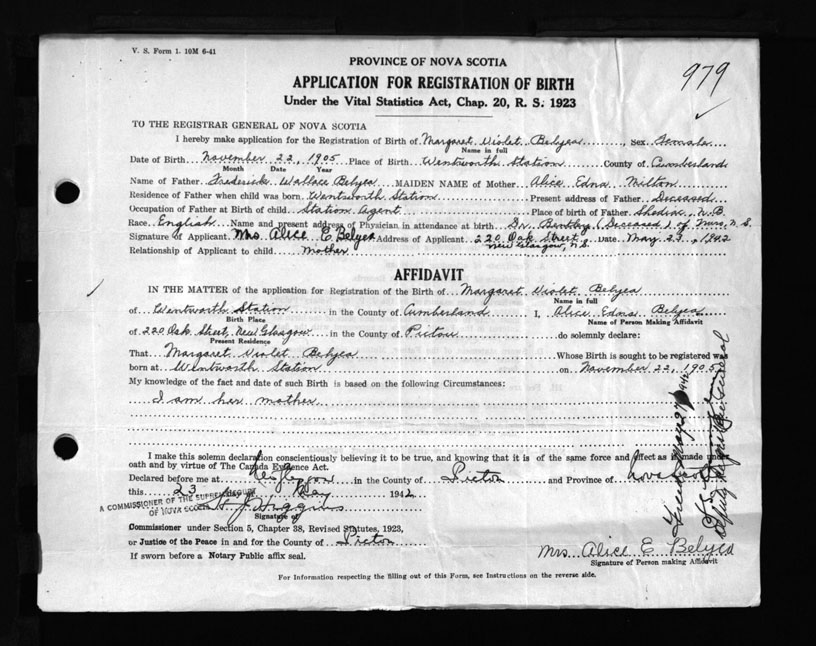 V. S. Form 1. 10M 6-41
979
PROVINCE OF NOVA SCOTIA
APPLICATION FOR REGISTRATION OF BIRTH
Under the Vital Statistics Act, Chap. 20, R. S. 1923
TO THE REGISTRAR GENERAL OF NOVA SCOTIA
I hereby make application for the Registration of Birth of Margaret Violet Belyea, Sex Female
Name in full
Date of Birth November 22, 1905 Place of Birth Wentworth Station County of Cumberland
Month Date Year
Name of Father Frederick Wallace Belyea MAIDEN NAME of Mother Alice Edna Wilton
Residence of Father when child was born Wentworth Station Present address of Father Deceased
Occupation of Father at Birth of child Station Agent Place of birth of Father Shediac, N.B.
Race English Name and present address of Physician in attendance at birth Dr. Bentley (Deceased) of Truro, N.S.
Signature of Applicant Mrs Alice E Belyea Address of Applicant 220 Oak Street Date May 23, 1942
New Glasgow, N.S.
Relationship of Applicant to child mother
AFFIDAVIT
IN THE MATTER of the application for Registration of the Birth of Margaret Violet Belyea
Name in full
of Wentworth Station in the County of Cumberland I, Alice Edna Belyea
Birth Place Name of Person Making Affidavit
of 220 Oak Street, New Glasgow in the County of Pictou do solemnly declare:
Present Residence
That Margaret Violet Belyea Whose Birth is sought to be registered was
born at Wentworth Station on November 22, 1905
My knowledge of the fact and date of such Birth is based on the following Circumstances:
I am her mother
I make this solemn declaration conscientiously believing it to be true, and knowing that it is of the same force and effect as if made under
oath and by virtue of The Canada Evidence Act.
Declared before me at in the County of Pictou and Province of Nova Scotia
this 23 May 1942
A COMMISSIONER OF THE SUPREME COURT
OF NOVA SCOTIA
Higgins
Signature of
Commissioner under Section 5, Chapter 38, Revised Statutes, 1923,
or Justice of the Peace in and for the County of Pictou
If sworn before a Notary Public affix seal.
Mrs Alice E Belyea
Signature of Person making Affidavit
For Information respecting the filling out of this Form, see Instructions on the reverse side.
May 27 1942
Deputy Registrar General